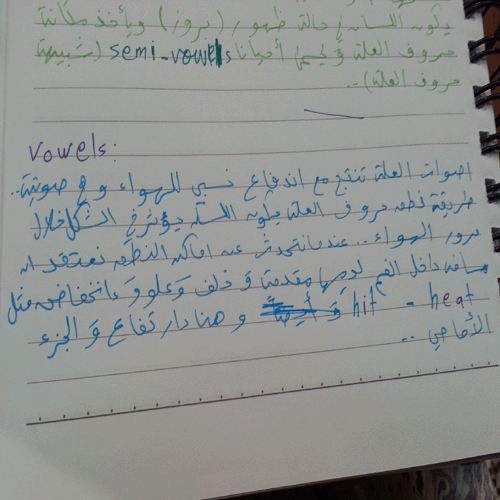 يكون اللسان في حالة ظهور (بروز) ويأخذ مكانة
حروف العلة و يسمى أحيانا semi-vowels (شبيهة
حروف العلة)..
Vowels:
اصوات العلة تنتج مع اندفاع نسبي للهواء و هي صوتية..
طريقة نطق حروف العلة يكون اللسان يؤثر في الشكل خلال
مرور الهواء .. عندما نتحدث عن اماكن النطق نعتقد ان
داخل الفم لديها مقدمة و خلف و علو و انخفاض مثل
heat - hit و هنا ارتفاع و الجزء
الأمامي ..